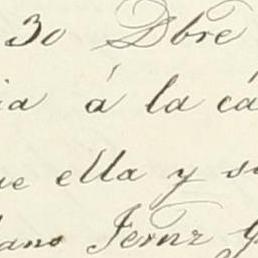 30 Dbre
ia á la cá
ue ella y su
lano Fernz G